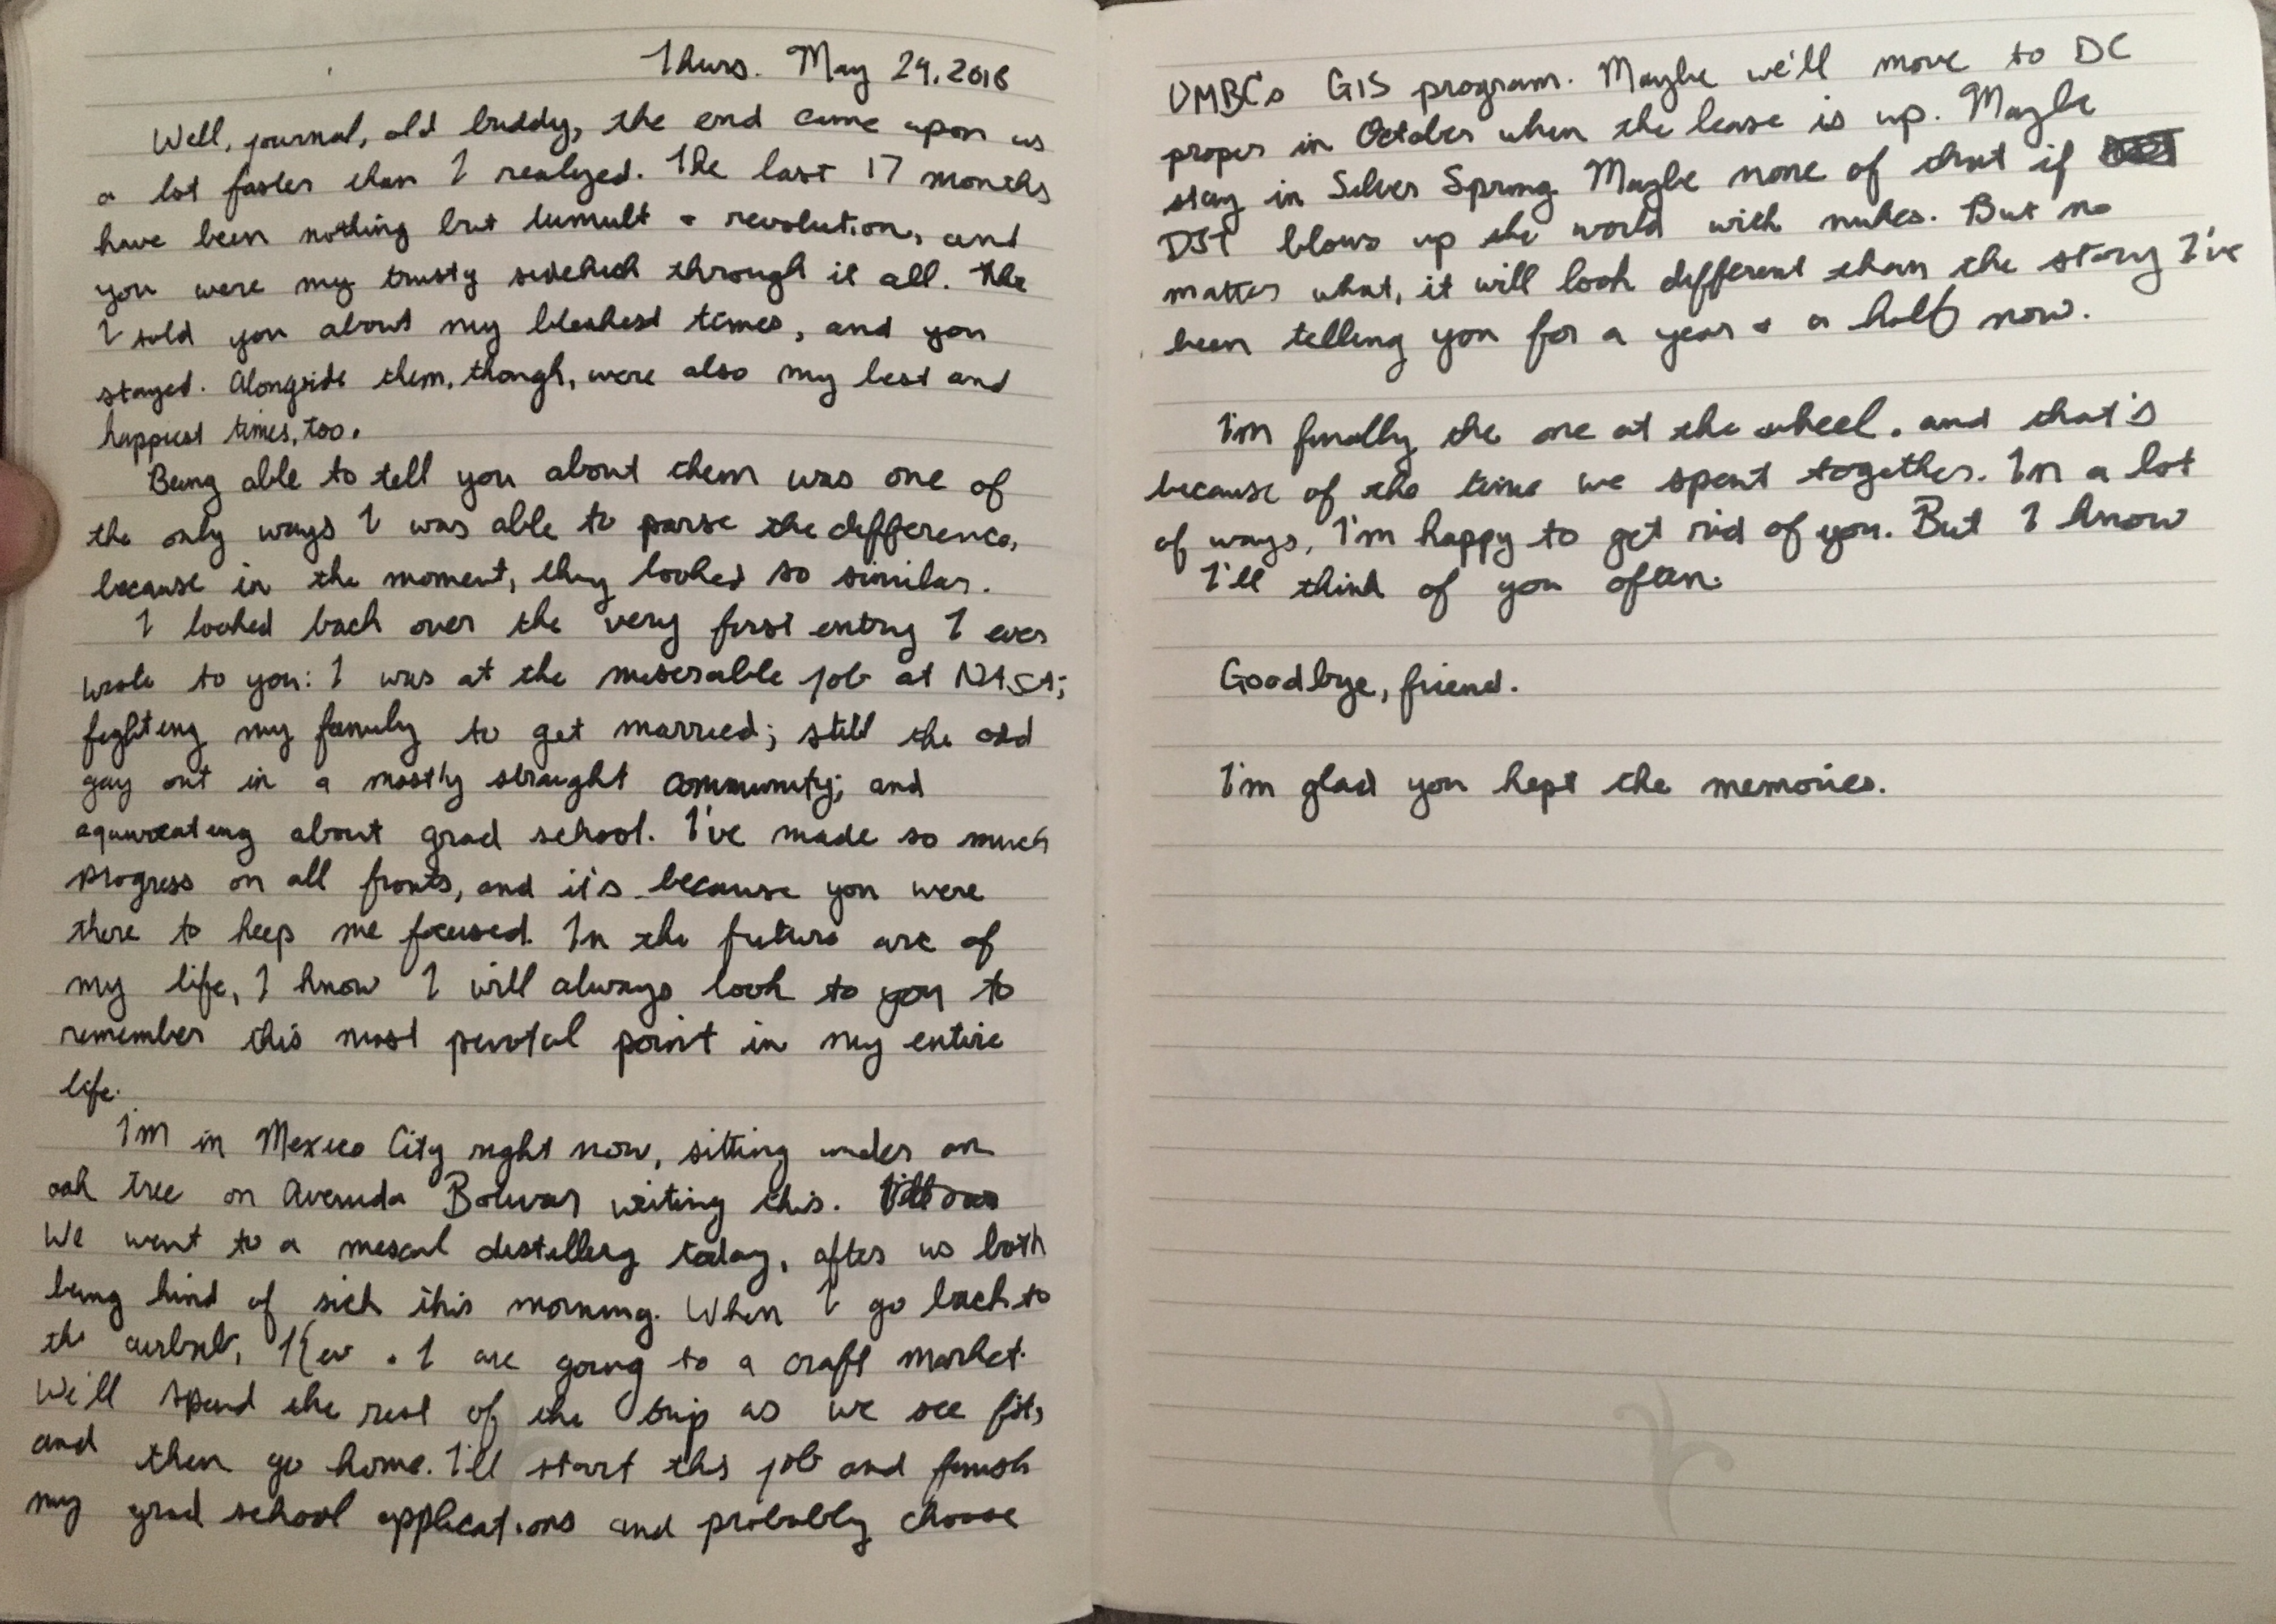 Thurs. May 24, 2018
Well, journal, old buddy, the end came upon us
a lot faster than I realized. The last 17 months
have been nothing but tumult + revolution, and
you were my trusty sidekick through it all. The
I told you about my bleakest times, and you
stayed. Alongside them, though, were also my best and
happiest times, too.
Being able to tell you about them was one of
the only ways I was able to parse the difference,
because in the moment, they looked so similar.
I looked back over the very first entry I ever
wrote to you: I was at the miserable job at
fighting my family to get married; still the odd
gay out in a mostly straight community; and
equivocating about grad school. I've made so much
progress on all fronts, and it's because you were
there to keep me focused. In the future arc of
my life, I know I will always look to you to
remember this most pivotal point in my entire
life.
I'm in Mexico City right now, sitting under an
oak tree on Avenida Bolivar writing this.
We went to a mescal distillery today, after us both
being kind of sick this morning. When I go back to
the airbnb, Kev + I are going to a craft market.
We'll spend the rest of the trip as we see fit,
and then go home. I'll start this job and finish
my grad school applications and probably choose
UMBC's GIS program. Maybe we'll move to DC
proper in October when the lease is up. Maybe
stay in Silver Spring. Maybe none of that if
DJT blows up the world with nukes. But no
matter what, it will look different than the story I've
been telling you for a year + a half now.
I'm finally the one at the wheel, and that's
because of the time we spent together. In a lot
of ways, I'm happy to get rid of you. But I know
I'll think of you often.
Goodbye, friend.
I'm glad you kept the memories.